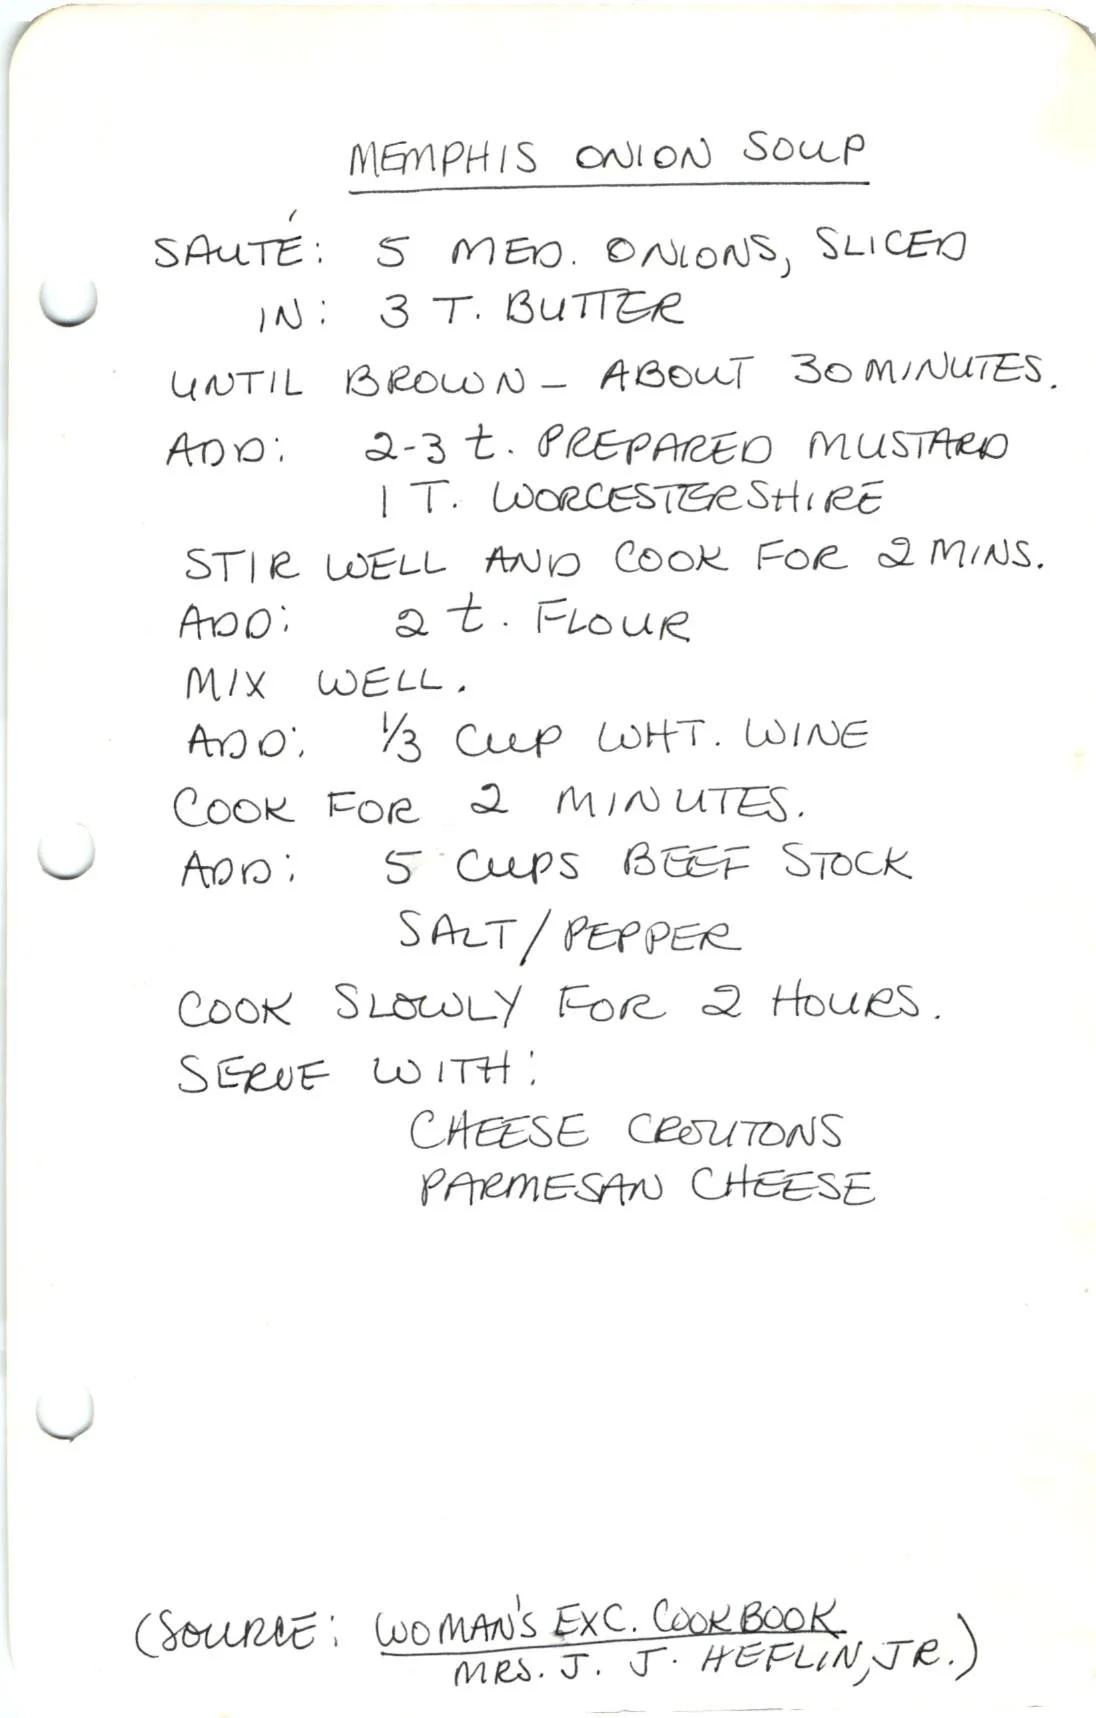 MEMPHIS ONION SOUP
SAUTÉ: 5 MED. ONIONS, SLICED
IN: 3 T. BUTTER
UNTIL BROWN - ABOUT 30 MINUTES.
ADD: 2-3 t. PREPARED MUSTARD
1 T. WORCESTERSHIRE
STIR WELL AND COOK FOR 2 MINS.
ADD: 2 t. FLOUR
MIX WELL.
ADD: 1/3 CUP WHT. WINE
COOK FOR 2 MINUTES.
ADD: 5 CUPS BEEF STOCK
SALT/PEPPER
COOK SLOWLY FOR 2 HOURS.
SERVE WITH:
CHEESE CROUTONS
PARMESAN CHEESE
(SOURCE: WOMAN'S EXC. COOKBOOK
MRS. J. J. HEFLIN, JR.)